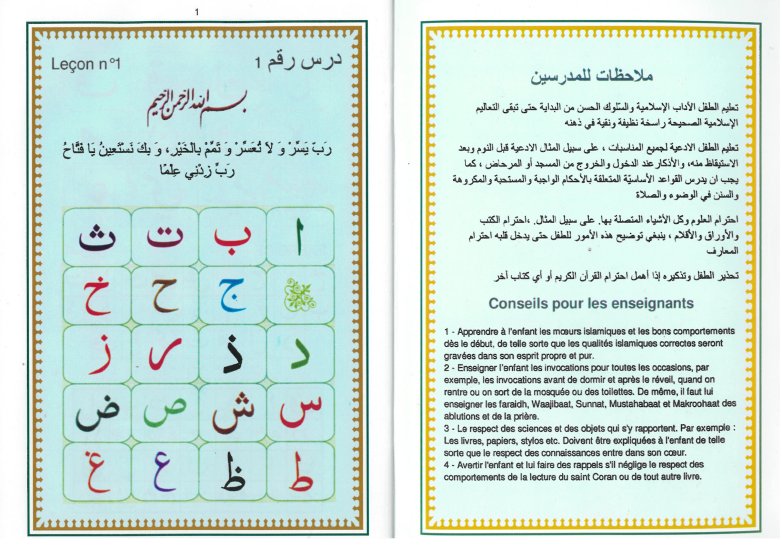 1
Leçon n°1 درس رقم 1
بسم الله الرحمن الرحيم
رَبِّ يَسِّرْ وَ لاَ تُعَسِّرْ وَ تَمِّمْ بِالْخَيْرِ، وَ بِكَ نَسْتَعِينُ يَا فَتَّاحُ
رَبِّ زِدْنِي عِلْمًا
ا ب ت ث
ج ح خ
د ذ ر ز
س ش ص ض
ط ظ ع غ
ملاحظات للمدرسين
تعليم الطفل الآداب الإسلامية والسّلوك الحسن من البداية حتى تبقى التعاليم
الإسلامية الصحيحة راسخة نظيفة ونقية في ذهنه
تعليم الطفل الادعية لجميع المناسبات ، على سبيل المثال الادعية قبل النوم وبعد
الاستيقاظ منه، والأذكارعند الدخول والخروج من المسجد أو المرحاض ، كما
يجب ان يدرس القواعد الأساسيّة المتعلقة بالأحكام الواجبة والمستحبة والمكروهة
والسنن في الوضوء والصلاة
احترام العلوم وكل الأشياء المتصلة بها. على سبيل المثال. ،احترام الكتب
والأوراق والأقلام ، ينبغي توضيح هذه الأمور للطفل حتى يدخل قلبه احترام
المعارف
تحذير الطفل وتذكيره إذا أهمل احترام القرآن الكريم أو أي كتاب آخر
Conseils pour les enseignants
1 - Apprendre à l'enfant les mœurs islamiques et les bons comportements
dès le début, de telle sorte que les qualités islamiques correctes seront
gravées dans son esprit propre et pur.
2 - Enseigner l'enfant les invocations pour toutes les occasions, par
exemple, les invocations avant de dormir et après le réveil, quand on
rentre ou on sort de la mosquée ou des toilettes. De même, il faut lui
enseigner les faraidh, Waajibaat, Sunnat, Mustahabaat et Makroohaat des
ablutions et de la prière.
3 - Le respect des sciences et des objets qui s'y rapportent. Par exemple :
Les livres, papiers, stylos etc. Doivent être expliquées à l'enfant de telle
sorte que le respect des connaissances entre dans son cœur.
4 - Avertir l'enfant et lui faire des rappels s'il néglige le respect des
comportements de la lecture du saint Coran ou de tout autre livre.